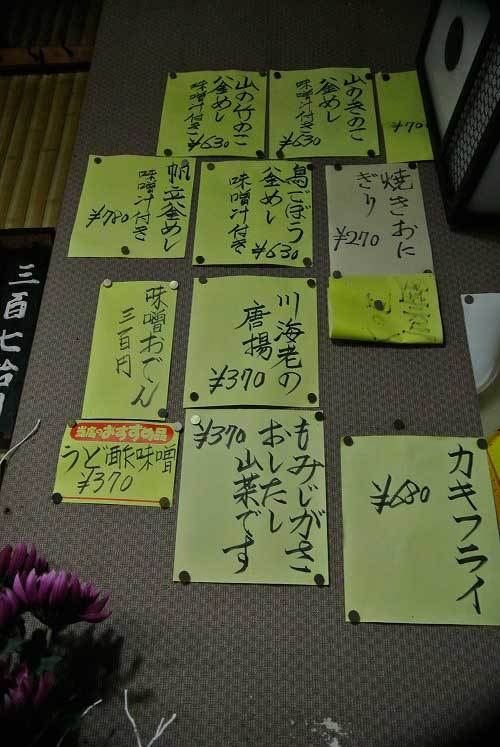 山の竹のこ
釜めし
味噌汁付き
¥630
山のきのこ
釜めし
味噌汁付き
¥630
¥70
帆立釜めし
味噌汁付き
¥780
鳥ごぼう
釜めし
味噌汁付き
¥630
焼きおに
ぎり
¥270
味噌おでん
三百円
川海老の
唐揚
¥370
当店のおすすめ品
うど酢味噌
¥370
もみじがさ
おしたし
山菜です
¥370
カキフライ
¥680
三百七拾